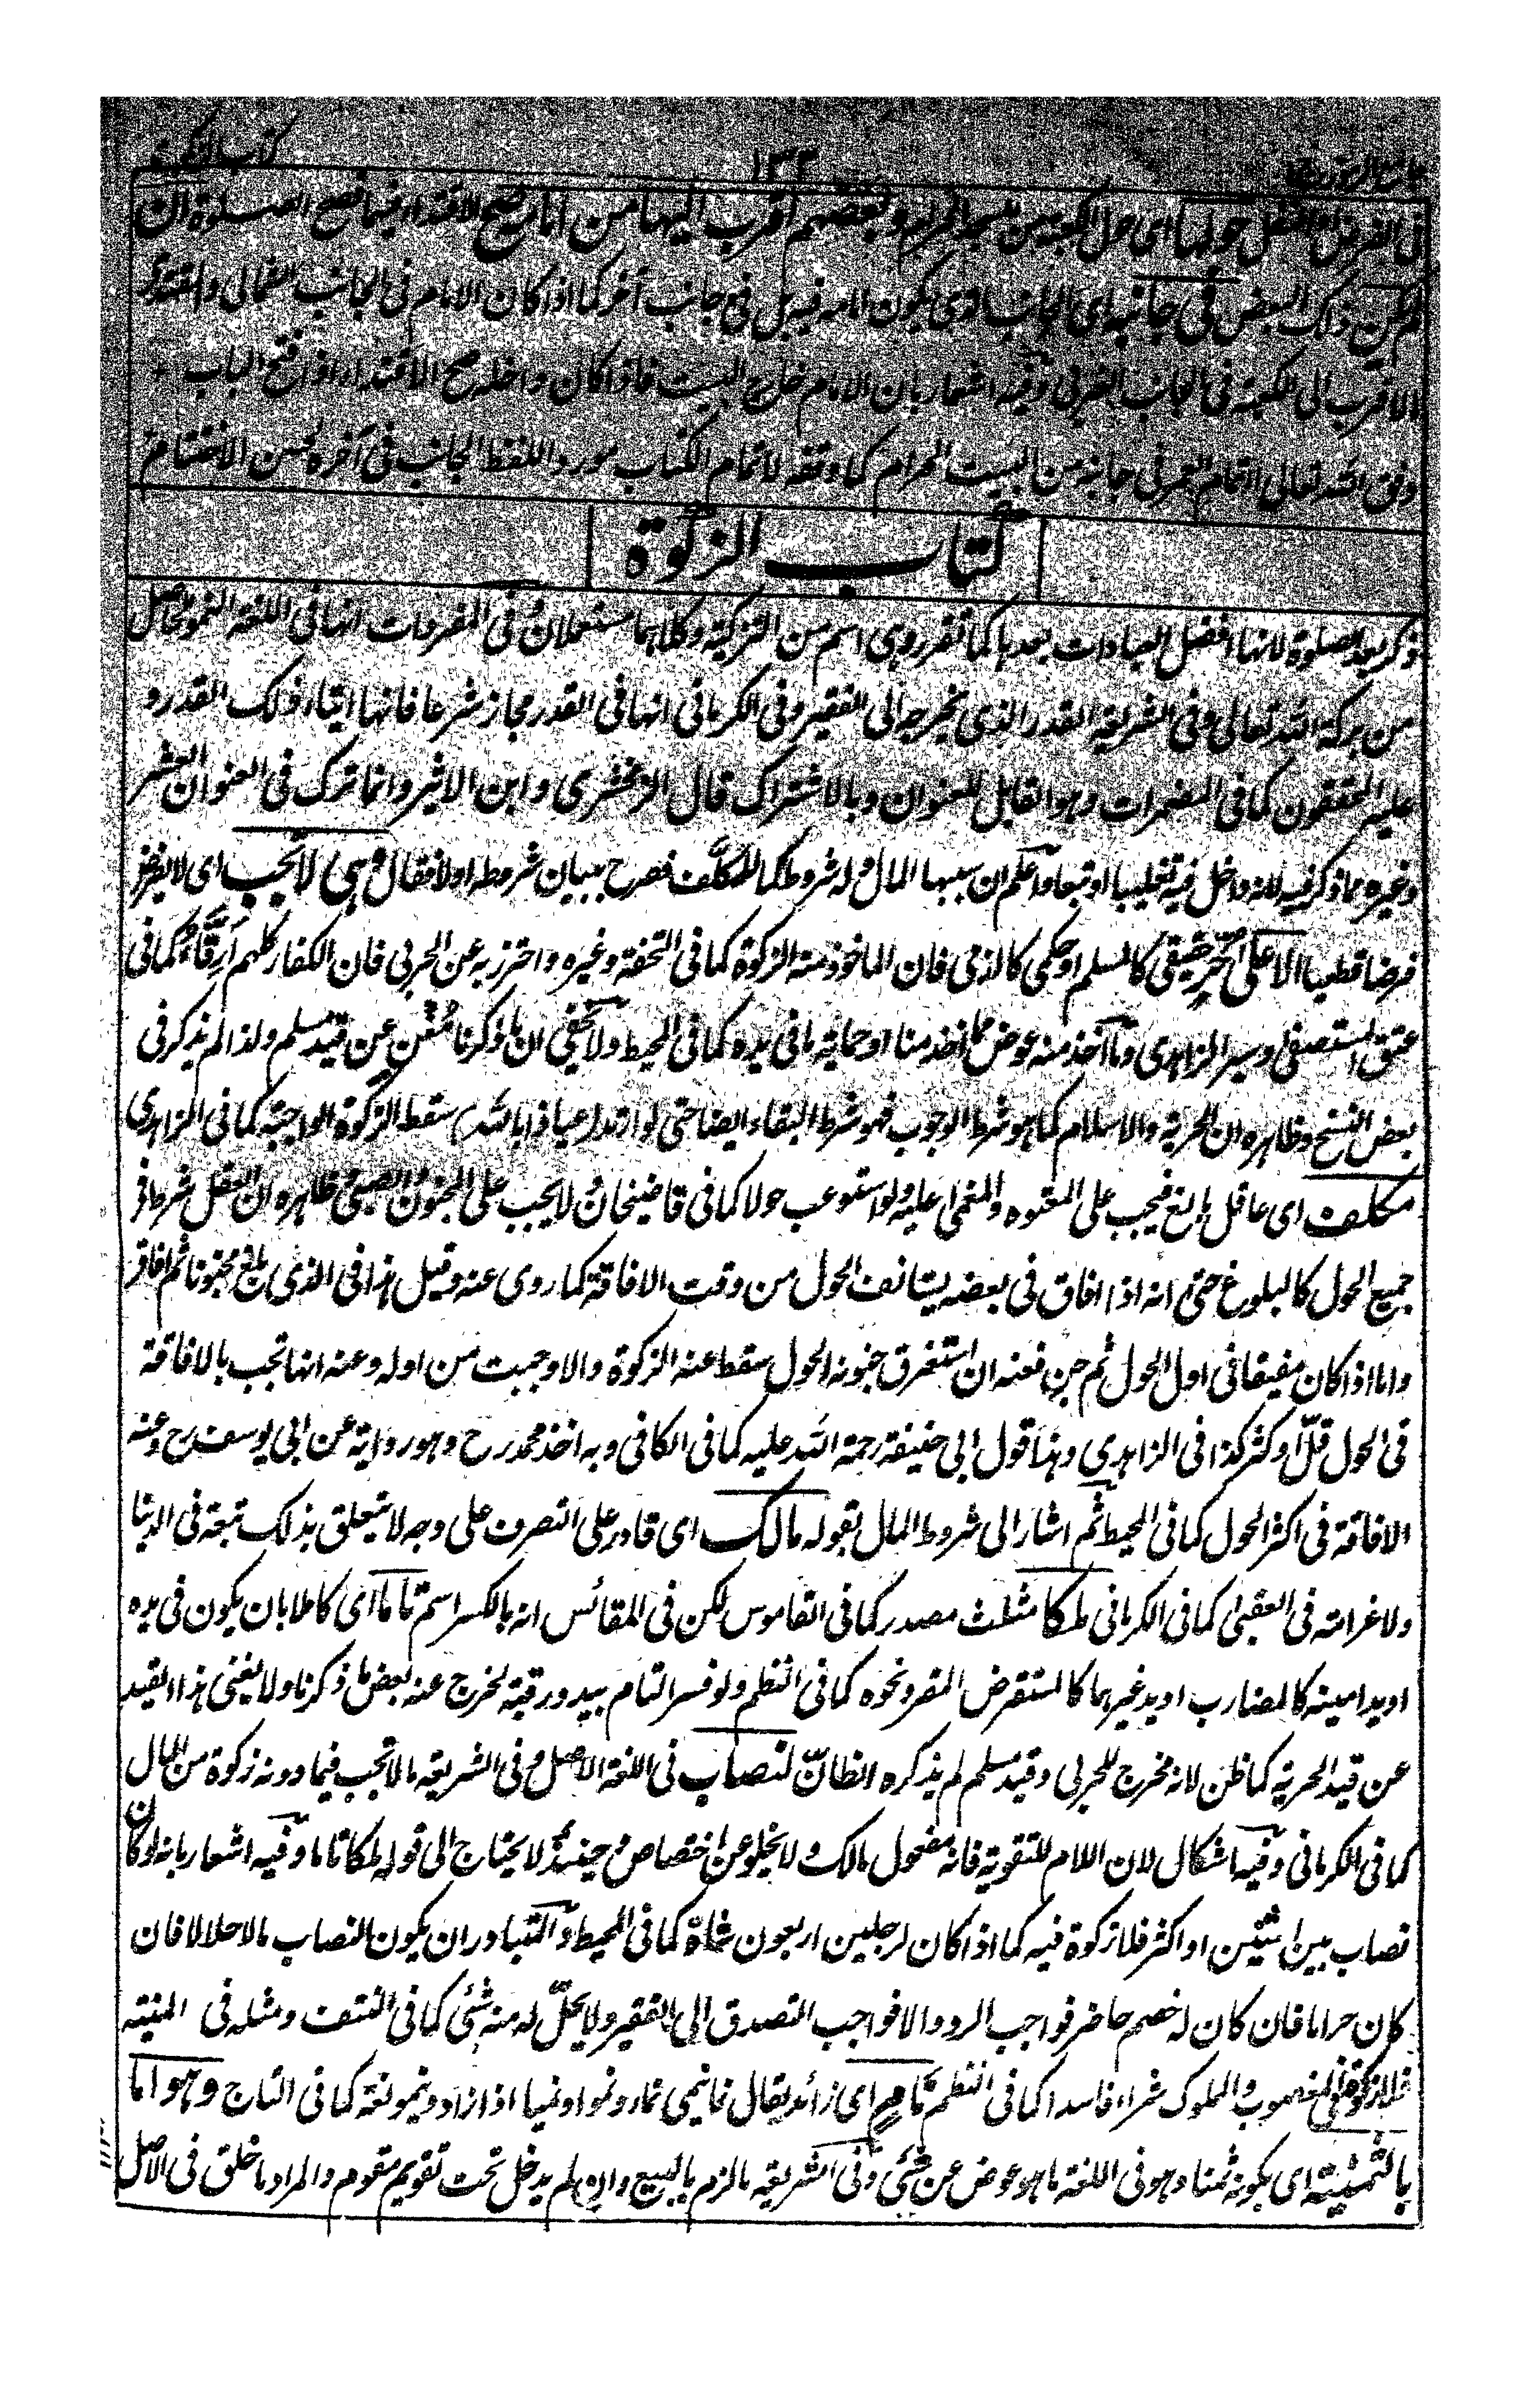 كتاب الزكوة
جامع الرموز
في الفرض او النفل حولها اى حول الكعبة من المسجد الحرام وبعضهم اقرب اليها من امامه يصح الاقتداء فيما تصح الصلوة ان
لم يكن ذلك البعض في جانبه اى الجانب الذى يكون امامه فيه بل في جانب آخر كما اذا كان الامام في الجانب الشمالى واقتدى
الاقرب الى الكعبة في الجانب الغربى وفيه اشعار بان الامام خارج البيت فاذا كان داخله صح الاقتداء اذا فتح الباب
وفق الله تعالى اتمام العمر في جانبه من البيت الحرام كما وفقه لاتمام الكتاب مورد اللفظ الجانب في آخره لحسن الاختتام
كتاب الزكوة
ذكر بعد الصلوة لانها افضل العبادات بعدها كما تقرر وهى اسم من التزكية وكلاهما مستعملان وفى المفردات انها في اللغة النمو الحاصل
من بركة الله تعالى وفى الشريعة القدر الذى يخرجه الى الفقير وفى الكرمانى انها فى القدر مجاز شرعا فانها ايتاء ذلك القدر و
عليه المحققون كما فى المضمرات وهو القابل للعنوان وبالاشتراك قال الزمخشرى وابن الاثير وانما ترك فى العنوان العشر
وغيره مما ذكر فيه لانه داخل فيه تغليبا او تبعا واعلم ان سببها المال وله شروط كما للمكلف فصرح ببيان شروطه اولا فقال وهى لا تجب اى لا يفرض
فرضا قطعيا الا على حر حقيقى كالمسلم او حكمى كالذمى فان الماخوذ منه الزكوة كما فى التحفة وغيره واحترز به عن الحربى فان الكفار كلهم ارقاء كما فى
عتق المستصفى وسير الزاهدى وما اخذ منه عوض ما اخذ منا او حماية ما فى يده كما فى المحيط ولا يخفى ان ما ذكرنا مغن عن قيد مسلم ولذا لم يذكر فى
بعض النسخ وظاهره ان الحرية والاسلام كما هو شرط الوجوب فهو شرط البقاء ايضا حتى لو ارتد عياذا بالله سقط الزكوة الواجبة كما فى الزاهدى
مكلف اى عاقل بالغ فيجب على المعتوه والمغمى عليه ولو استوعب حولا كما فى قاضيخان ولا يجب على المجنون والصبى وظاهره ان العقل شرط فى
جميع الحول كالبلوغ حتى انه اذا افاق فى بعضه يستانف الحول من وقت الافاقة كما روى عنه وقيل هذا فى الذى بلغ مجنونا ثم افاق
واما اذا كان مفيقا فى اول الحول ثم جن فعنه ان استغرق جنونه الحول سقط عنه الزكوة والا وجبت من اوله وعنه انها تجب بالافاقة
فى الحول قل او كثر كذا فى الزاهدى وهذا قول ابى حنيفة رحمة الله عليه كما فى الكافى وبه اخذ محمد رح وهو رواية عن ابى يوسف رح وعنه
الافاقة فى اكثر الحول كما فى المحيط ثم اشار الى شروط المال بقوله مالك اى قادر على التصرف على وجه لا يتعلق بذلك تبعة فى الدنيا
ولا غرامة فى العقبى كما فى الكرمانى ملكا مثلث مصدر كما فى القاموس لكن فى المقائس انه بالكسر اسم تاما اى كاملا بان يكون فى يده
او يد امينه كالمضارب او يد غيرهما كالمستقرض المقر ونحوه كما فى النظم ولو فسر التام بيد ورقبة لخرج عنه بعض ما ذكرنا ولا يغنى هذا القيد
عن قيد الحرية كما ظن لانه مخرج للحربى وقيد مسلم لم يذكره الظان لنصاب فى اللغة الاصل وفى الشريعة ما لا تجب فيما دونه زكوة من المال
كما فى الكرمانى وفيه اشكال لان اللام للتقوية فانه مفعول مالك ولا يخلو عن اختصاص وحينئذ لا يحتاج الى قوله ملكا تاما وفيه اشعار بانه لو كان
نصاب بين اثنين او اكثر فلا زكوة فيه كما اذا كان لرجلين اربعون شاة كما فى المحيط والمتبادر ان يكون النصاب مالا حلالا فان
كان حراما فان كان له خصم حاضر فواجب الرد والا فواجب التصدق الى الفقير ولا يحل له منه شئ كما فى النتف ومثله فى المنية
فلا زكوة فى المغصوب والمملوك شراء فاسدا كما فى النظم نام اى زائد يقال نما ينمى نماء ونموا ونميا اذا زاد وينمو لغة كما فى التاج وهو اما
بالثمنية اى بكونه ثمنا وهو فى اللغة ما هو عوض عن شئ وفى الشريعة ما لزم بالبيع وان لم يدخل تحت تقويم مقوم والمراد ما خلق فى الاصل